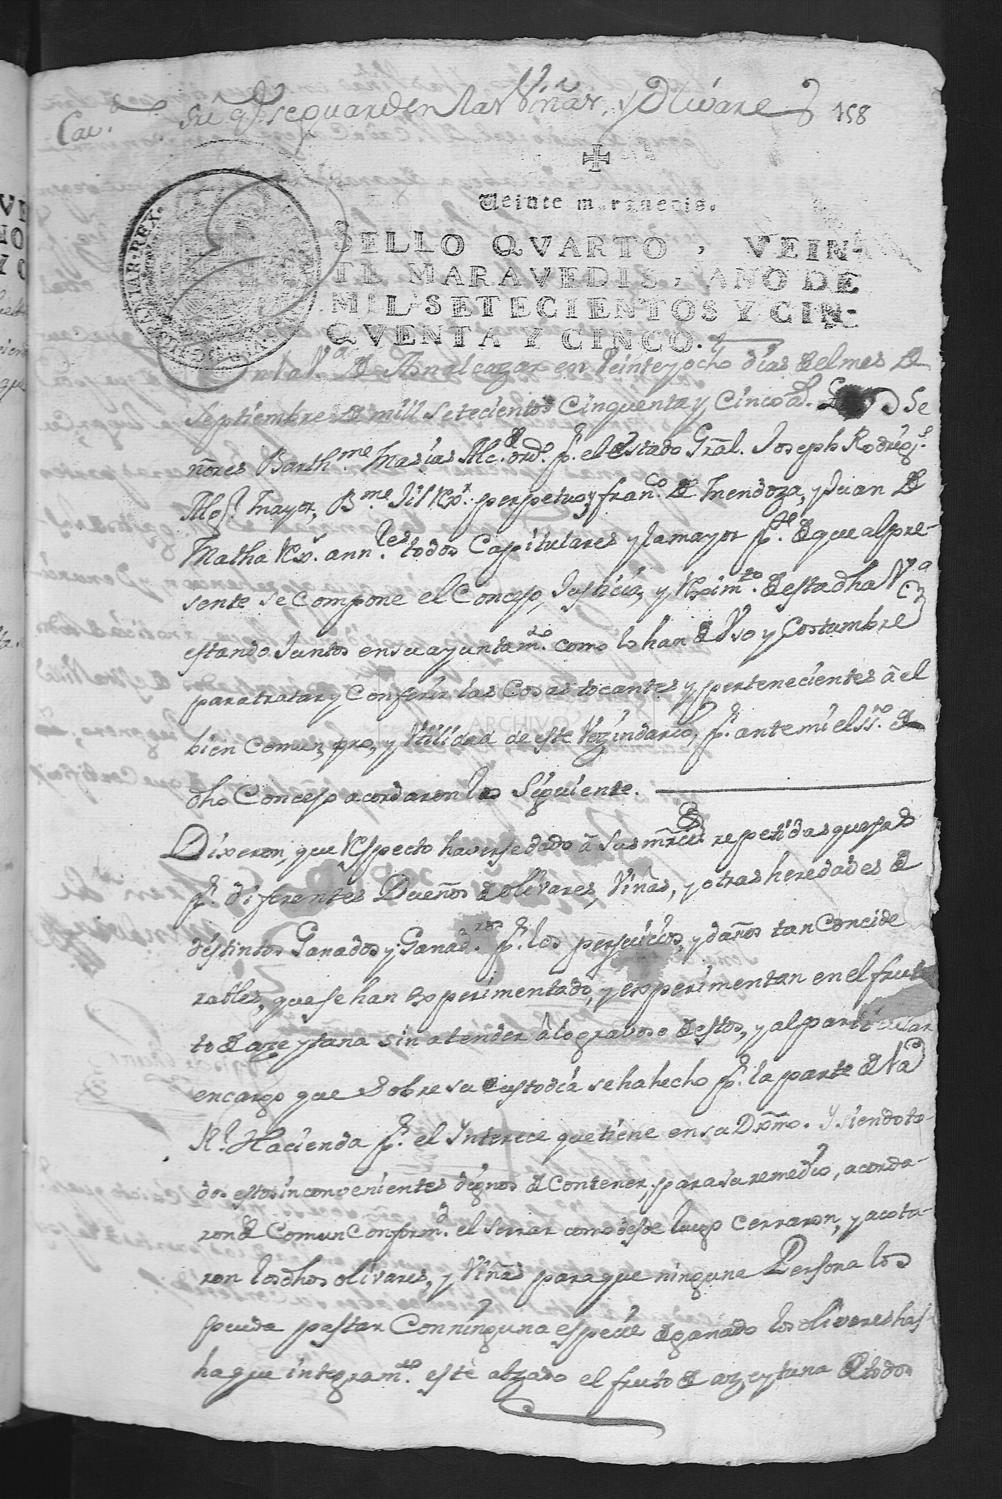 Cav.º Sre q̃ Se guarden las Viñas, y Olivares 158
Veinte maravedis.
SELLO QVARTO, VEIN-
TE MARAVEDIS, AÑO DE
MIL SETECIENTOS Y CIN-
QVENTA Y CINCO.
En la V.ª de Asnalcazar en Veinteyocho dias del mes de
Septiembre de mill setecientos Cinquenta y Cinco a.s Los Se
ñores Barth.me Masias Alc.de ord.º p.r el estado Gral. Joseph Rodrig.s
Alg.l mayor, B.me Gil Rx.r perpetuo, y fran.co de Mendoza, y Juan de
Matha Rx.s ann.les todos Capitulares y la mayor p.te de que al pre-
sente se Compone el Concejo, Justicia, y Reximto. de esta dha V.ª
estando Juntos en su ayuntam.to como lo han de Vso y Costumbre
para tratar y Conferir las Cosas tocantes y pertenecientes â el
bien Comun, pro, y Utilidad de este Vezindario, p.r ante mi el ss.no de
dho Concejo acordaron lo Siguiente.
Dixeron, que Respecto haverse dado â Sus mrcds repetidas quejas
p.r diferentes Dueños de olivares, Viñas, y otras heredades de
distintos Ganados y Ganad.ros p.r los perjuicios, y daños tan Concide
rables, que se han experimentado, y experimentan en el fruto
to de azeytuna sin atender â lo gravoso de estos, y al particular
encargo que Sobre su Custodia se ha hecho p.r la parte de la
R.l Hacienda p.r el Ynterece que tiene en su Dezmo. Y siendo to-
dos estos inconvenientes dignos de Contener, para su remedio, acorda-
ron de Comun Conform.d el serrar como desde luego cerraron, y acota-
ron los dhos olivares, y Viñas para que ninguna Persona los
pueda pastar Con ninguna especie de ganado los olivares has-
ha que integram.te este alzado el fruto de azeytuna de todos